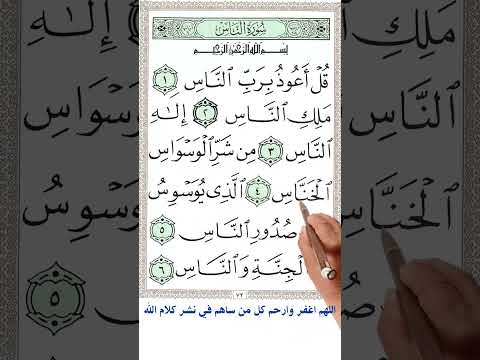 سُورَةُ النَّاسِ
بِسْمِ اللَّهِ الرَّحْمَٰنِ الرَّحِيمِ
قُلْ أَعُوذُ بِرَبِّ ٱلنَّاسِ ١
مَلِكِ ٱلنَّاسِ ٢ إِلَٰهِ
ٱلنَّاسِ ٣ مِن شَرِّ ٱلْوَسْوَاسِ
ٱلْخَنَّاسِ ٤ ٱلَّذِى يُوَسْوِسُ
صُدُورِ ٱلنَّاسِ ٥
لْجِنَّةِ وَٱلنَّاسِ ٦
اللهم اغفر وارحم كل من ساهم في نشر كلام الله